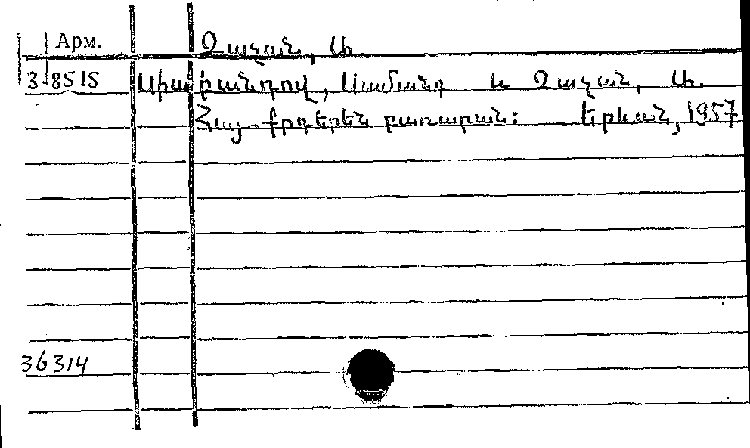 Арм. Չաչան, Ա.
3-8515 Սիաբանդով, Սամանդ և Չաչան, Ա.
Հայ-քրդերեն բառարան: Երևան, 1957
36314